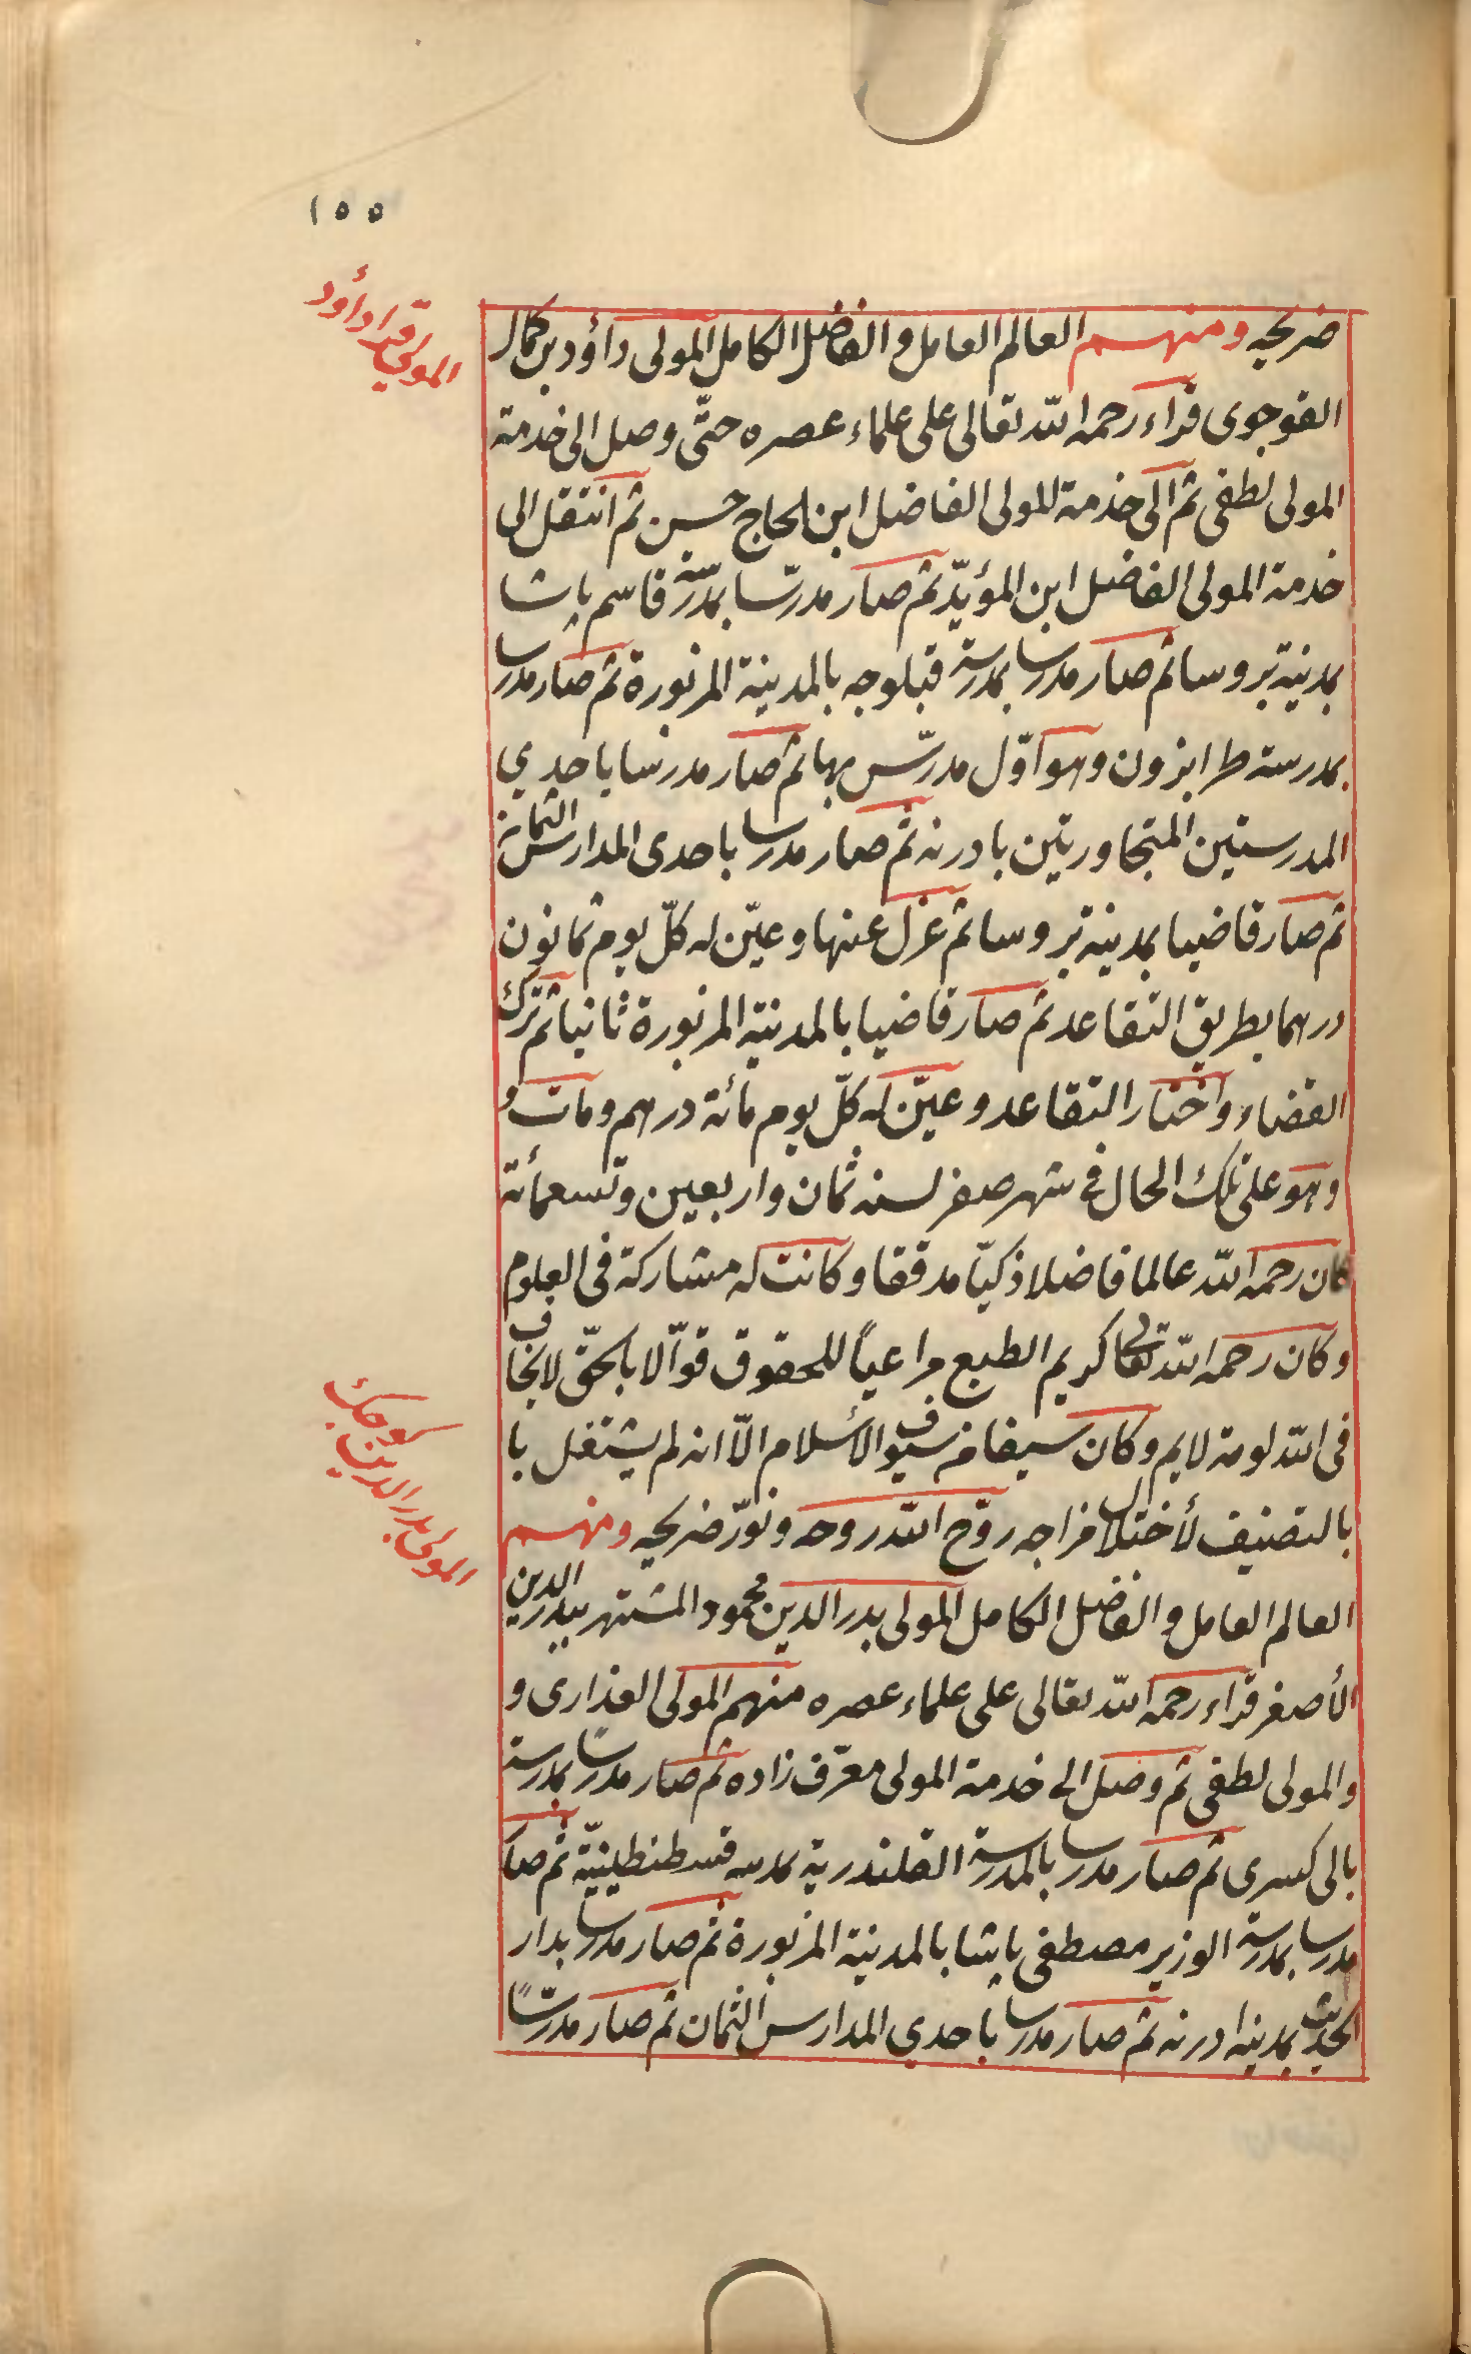 ١٥٥
المولى قرا داؤد
ضريحه ومنهم العالم العامل والفاضل الكامل المولى داؤد بن كمال
القوجوى قراء رحمه الله تعالى على علماء عصره حتّى وصل الى خدمة
المولى لطفى ثم الى خدمة المولى الفاضل ابن الحاج حسن ثم انتقل الى
خدمة المولى الفاضل ابن المؤيّد ثم صار مدرّسا بمدرسة قاسم پاشا
بمدينة بروسا ثم صار مدرسا بمدرسة قبلوجه بالمدينة المزبورة ثم صار مدرسا
بمدرسة طرابزون وهو اوّل مدرّس بها ثم صار مدرسا باحدي
المدرستين المتجاورتين بادرنه ثم صار مدرسا باحدى المدارس الثمانية
ثم صار قاضيا بمدينة بروسا ثم عزل عنها وعيّن له كلّ يوم ثمانون
درهما بطريق التقاعد ثم صار قاضيا بالمدينة المزبورة ثانيا ثم ترك
القضاء واختار التقاعد وعيّن له كلّ يوم مائة درهم ومات و
وهو على تلك الحال في شهر صفر لسنه ثمان واربعين وتسعمأئة
كان رحمه الله عالما فاضلا ذكيّا مدققا وكانت له مشاركة فى العلوم
وكان رحمه الله تعالى كريم الطبع مراعياً للحقوق قوّالا بالحقّ لا يخاف
فى الله لومة لايم وكان سيفا من سيوف الأسلام الّا انه لم يشتغل با
بالتصنيف لأختلال مزاجه روّح الله روحه ونوّر ضريحه ومنهم
المولى بدر الدين كوجك
العالم العامل والفاضل الكامل المولى بدر الدين محمود المشتهر ببدر الدين
الأصغر قراء رحمه الله تعالى على علماء عصره منهم المولى العذارى و
والمولى لطفى ثم وصل الى خدمة المولى معرّف زاده ثم صار مدرسا بمدرسة
بالى كسرى ثم صار مدرسا بالمدرسة القلندرية بمدينه قسطنطينيّة ثم صار
مدرسا بمدرسة الوزير مصطفى پاشا بالمدينة المزبورة ثم صار مدرسا بدار
الحديث بمدينه ادرنه ثم صار مدرسا باحدي المدارس الثمان ثم صار مدرّساً